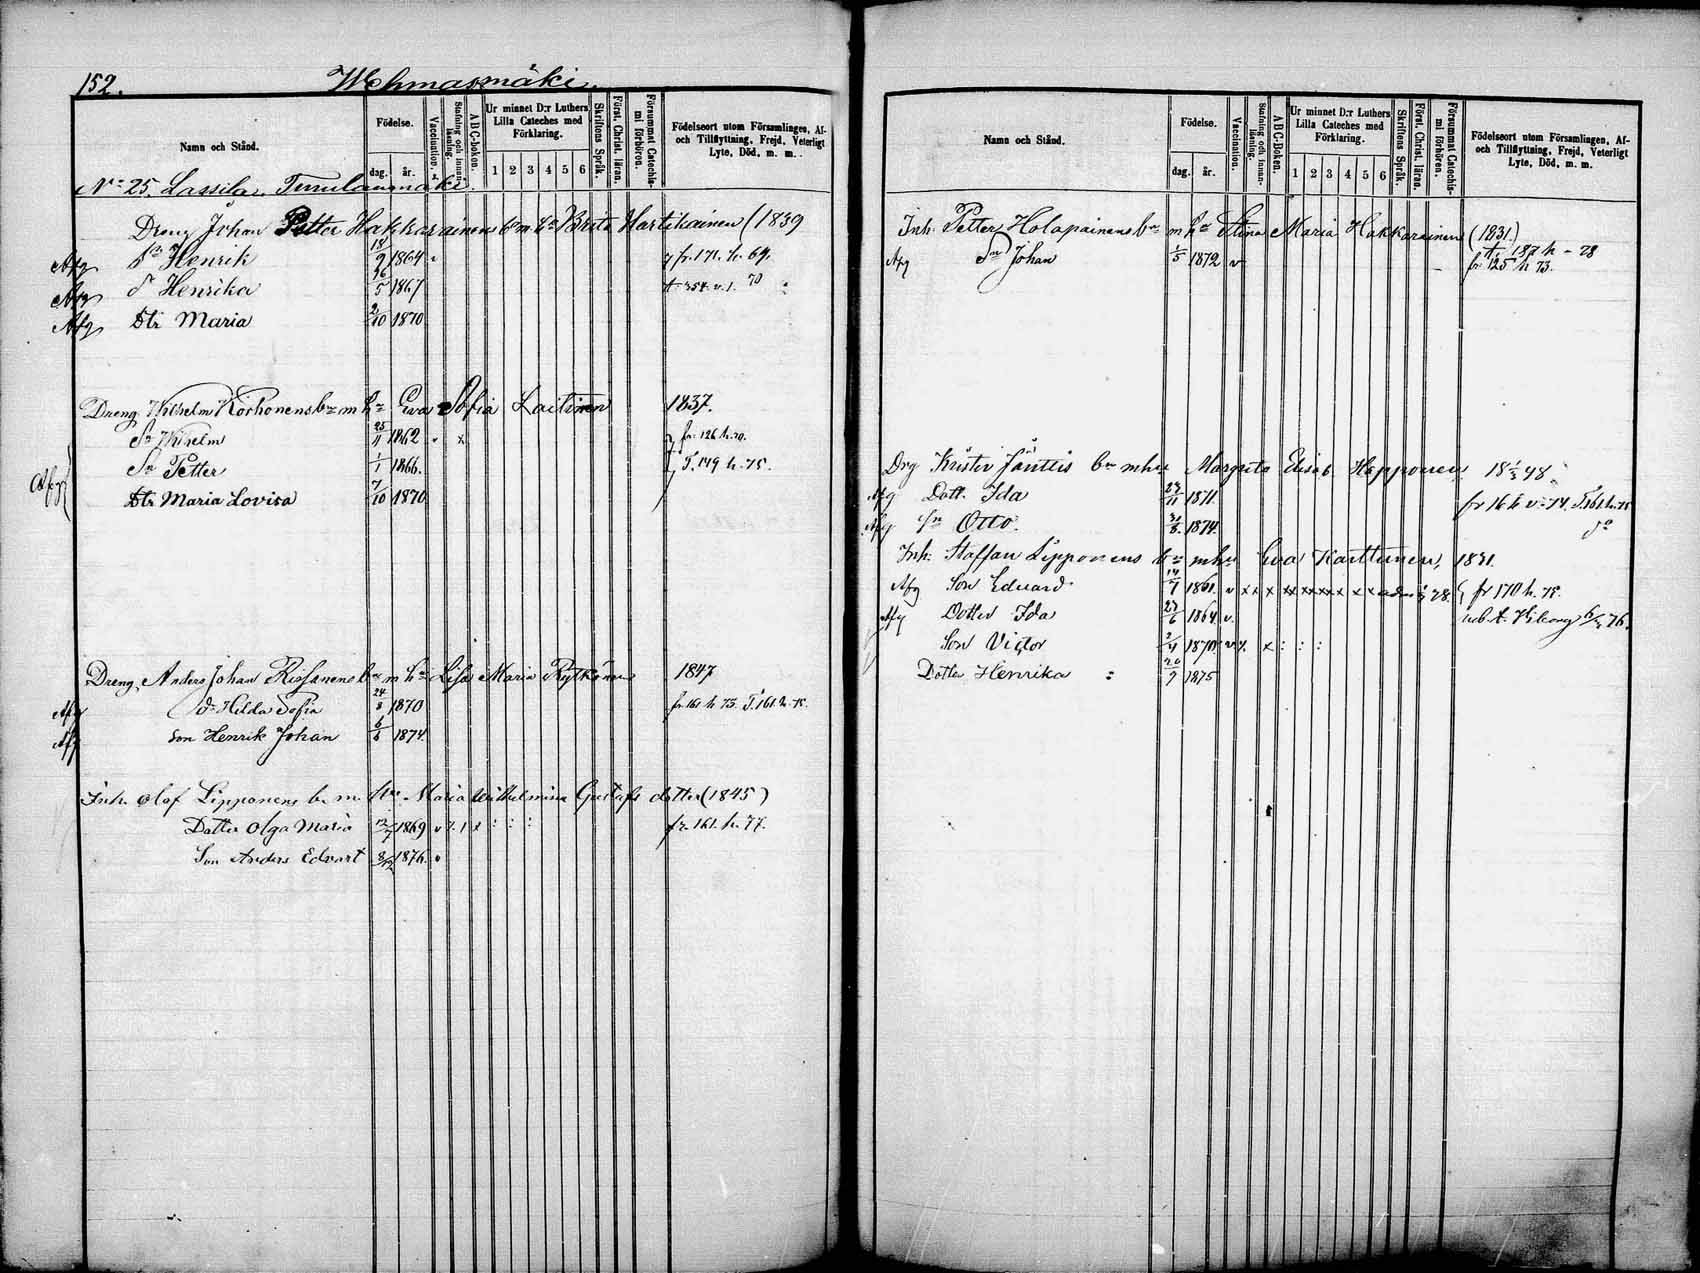 152. Wehmasmäki.
Namn och Stånd.
Födelse.
dag. år.
Vaccination.
Stafning och innan-läsning.
ABC-boken.
Ur minnet D:r Luthers Lilla Cateches med Förklaring.
1 2 3 4 5 6
Skriftens Språk.
Först. Christ. läran.
Försummat Catechis-mi förhören.
Födelseort utom Församlingen, Af- och Tillflyttning, Frejd, Veterligt Lyte, Död, m. m.
No 25. Lassila,
Dreng Johan Petter Hakkarainens bn m ha Brita Hartikainen (1839
Afg sn Henrik 18/9 1864 fr. 171. h. 69.
Afg Henrika /5 1867 354. v. 1. 70
Afg Dtr Maria 2/10 1870
Dreng Wilhelm Korhonens bn m ha Eva Sofia Laitinen 1837.
Sn Wilhelm 25/11 1862 x fr. 126 h. 70.
Sn Petter 1/1 1866. T. 149 h. 75.
Afg Dtr Maria Lovisa 7/10 1870
Dreng Anders Johan Rissanens bn m ha Lisa Maria Rytkönen 1847
Afg Dr Hilda Sofia 24/8 1870 fr. 161 h 73. T. 161. h. 75.
Afg Son Henrik Johan 6/6 1874.
Inh. Olof Lipponens b. m. Hu. Maria Wilhelmina Gustafs dotter (1845)
Dotter Olga Maria /7 1869 v x. 1 x : : : fr. 161. h. 77.
Son Anders Edvart 8/12 1876. v
Namn och Stånd.
Födelse.
dag. år.
Vaccination.
Stafning och innan-läsning.
ABC-boken.
Ur minnet D:r Luthers Lilla Cateches med Förklaring.
1 2 3 4 5 6
Skriftens Språk.
Först. Christ. läran.
Försummat Catechis-mi förhören.
Födelseort utom Församlingen, Af- och Tillflyttning, Frejd, Veterligt Lyte, Död, m. m.
Inh. Petter Holapainens bn m ha Stina Maria Hakkarainen (1831.)
137 h - 78
Afg Sn Johan 1/5 1872 v fr 125 h 73.
Drg Krister Jänttis bn m hu Margreta Elisab Hepponen, 18 48.
Afg Dott. Ida /11 1871. fr 16 h v. 74. T. 161 h. 75
Afg Sn Otto. /8. 1874. do
Inh. Staffan Lipponens bn m hu Eva Karttunen, 1831.
Afg Son Eduard 14/7 1861. v x x x xx xx xx x x x adm 78. fr 170 h. 75.
Afg Dotter Ida 27/6 1864 v.
Son Victor 2/4 1870 v x. x : : :
Dotter Henrika 20/9 1875